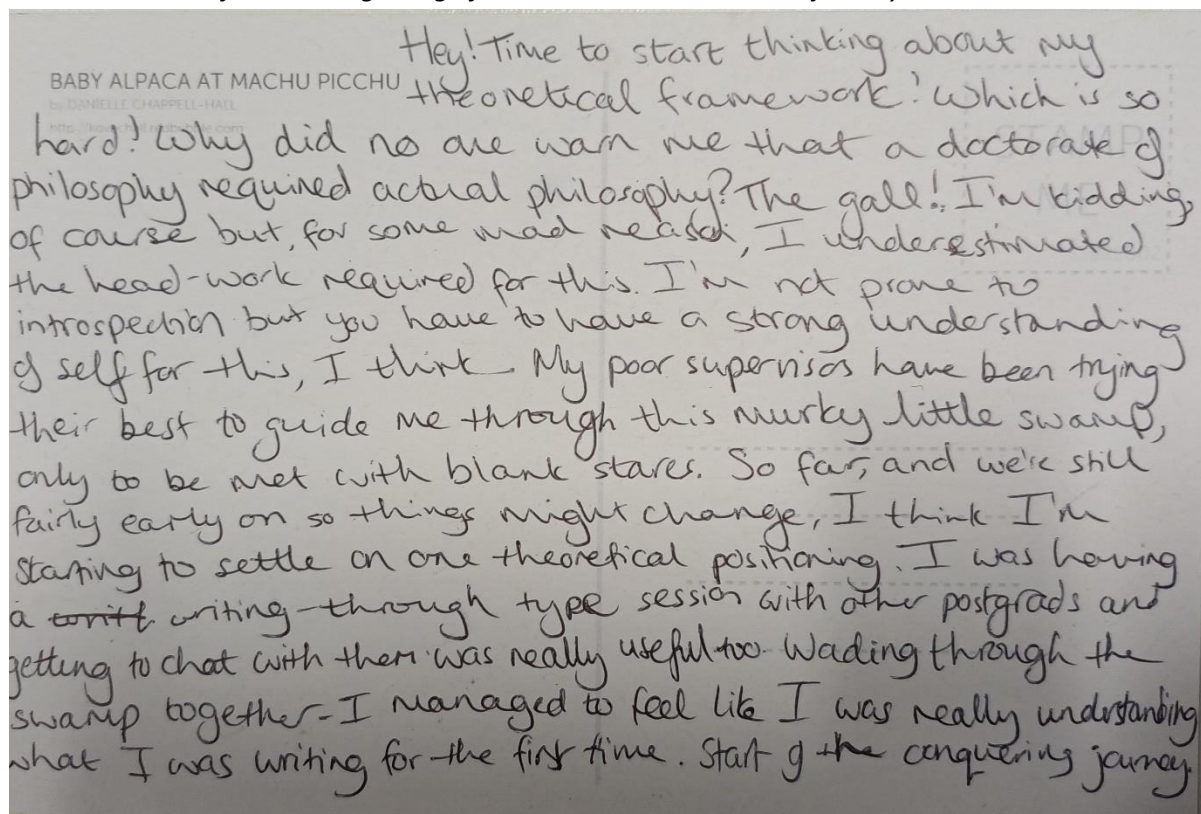 Hey! Time to start thinking about my
BABY ALPACA AT MACHU PICCHU
theoretical framework! Which is so
by DANIELLE CHAPPELL-HALL
hard! Why did no one warn me that a doctorate of
STAMP
philosophy required actual philosophy? The gall! I'm kidding,
of course but, for some mad reason, I underestimated
the head-work required for this. I'm not prone to
introspection but you have to have a strong understanding
of self for this, I think. My poor supervisors have been trying
their best to guide me through this murky little swamp,
only to be met with blank stares. So far, and we're still
fairly early on so things might change, I think I'm
starting to settle on one theoretical positioning. I was having
a writing-through type session with other postgrads and
getting to chat with them was really useful too. Wading through the
swamp together - I managed to feel like I was really understanding
what I was writing for the first time. Start of the conquering journey.